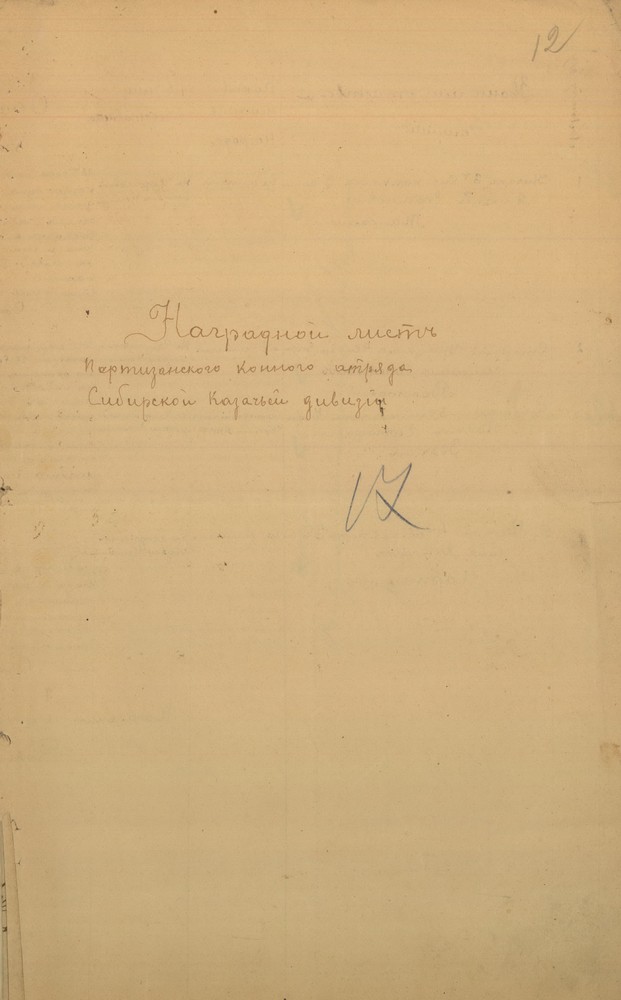 12
Наградной листъ
Партизанского конного отряда
Сибирской Казачьей дивизіи
17